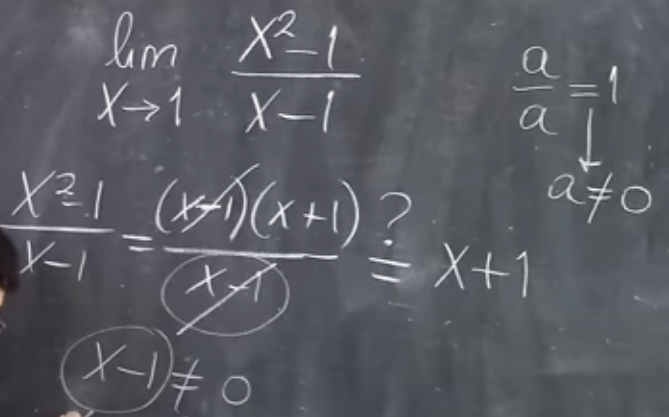 lim x→1 (x²-1)/(x-1)
a/a = 1
↓
a ≠ 0
(x²-1)/(x-1) = (x-1)(x+1)/(x-1) ≟ x+1
x-1 ≠ 0